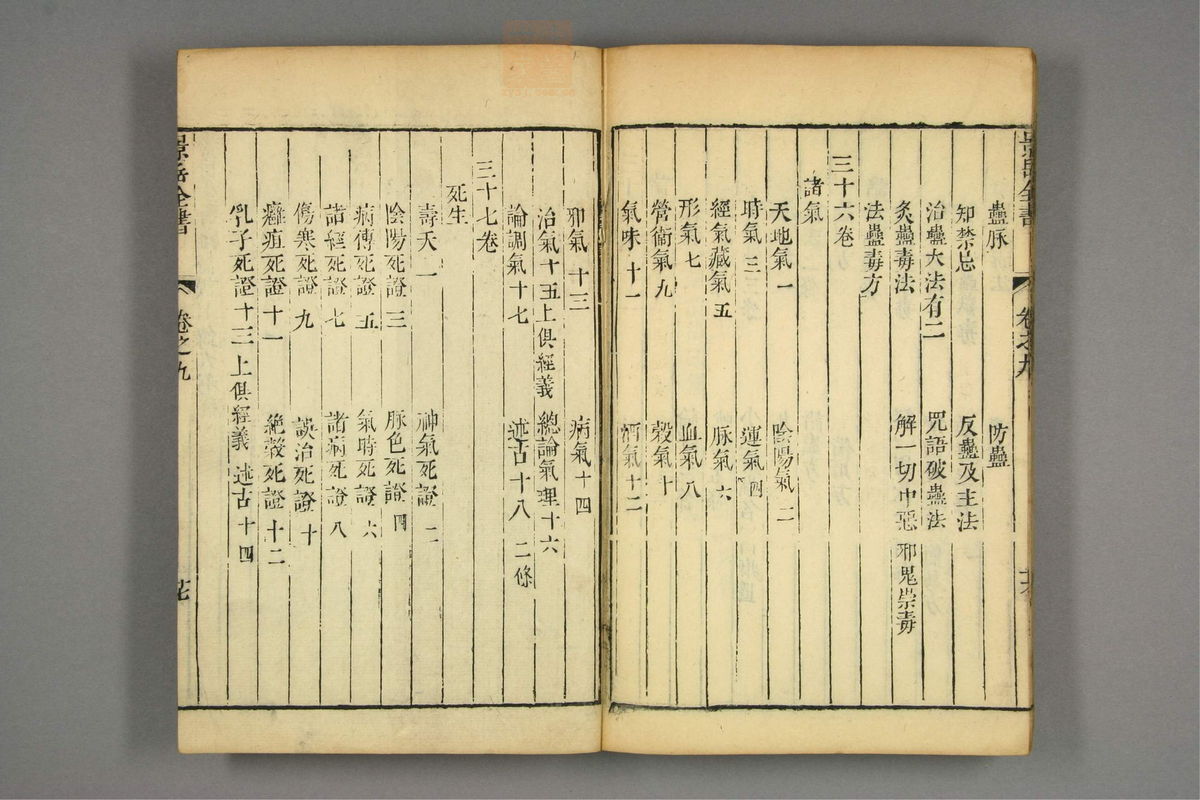 蠱脉 防蠱
知禁忌 反蠱及主法
治蠱大法有二 咒語破蠱法
灸蠱毒法 解一切中惡邪鬼祟毒
法蠱毒方
三十六卷
諸氣
天地氣一 陰陽氣二
時氣三 運氣四
經氣藏氣五 脉氣六
形氣七 血氣八
營衞氣九 穀氣十
氣味十一 酒氣十二
邪氣十三 病氣十四
治氣十五上俱經義 總論氣理十六
論調氣十七 述古十八 二條
三十七卷
死生
壽夭一 神氣死證二
陰陽死證三 脉色死證四
病傳死證五 氣時死證六
諸經死證七 諸病死證八
傷寒死證九 誤治死證十
癰疽死證十一 絶穀死證十二
乳子死證十三上俱經義 述古十四
景岳全書 卷之九